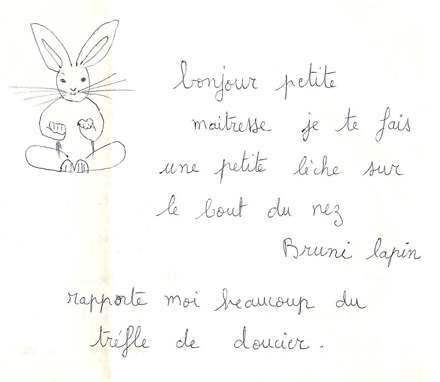 bonjour petite
maitresse je te fais
une petite lèche sur
le bout du nez
Bruni lapin
rapporte moi beaucoup du
tréfle de doucier.